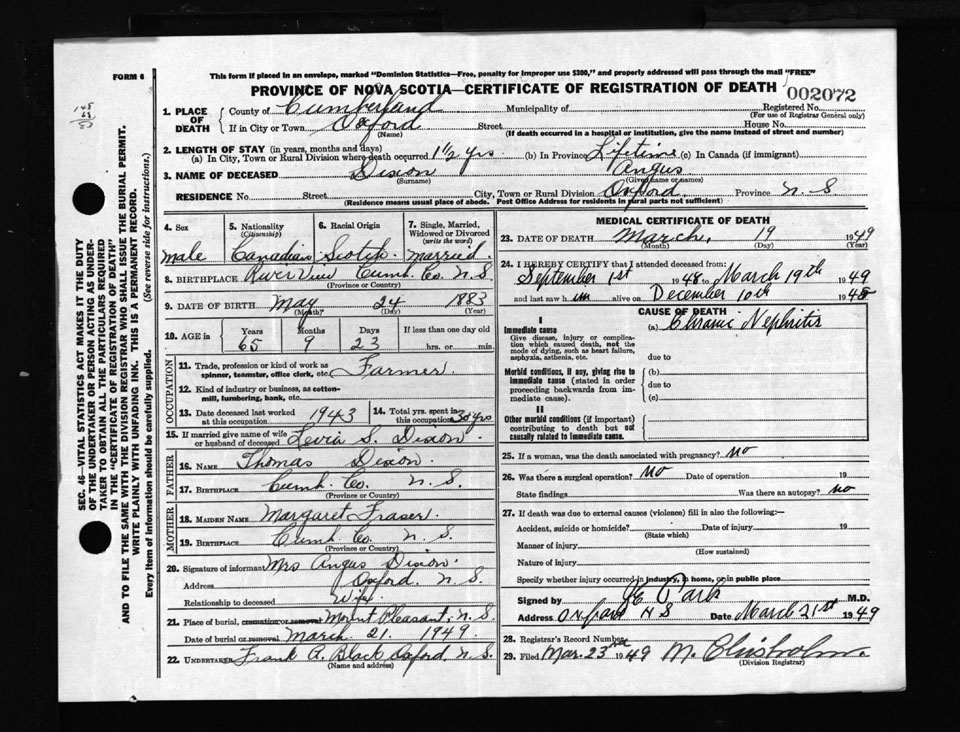 FORM 6
This form if placed in an envelope, marked "Dominion Statistics—Free, penalty for improper use $300," and properly addressed will pass through the mail "FREE"
PROVINCE OF NOVA SCOTIA—CERTIFICATE OF REGISTRATION OF DEATH 002072
1. PLACE OF DEATH
County of Cumberland Municipality of Registered No.
(For use of Registrar General only)
If in City or Town Oxford Street House No.
(Name) (If death occurred in a hospital or institution, give the name instead of street and number)
2. LENGTH OF STAY (in years, months and days)
(a) In City, Town or Rural Division where death occurred 1 1/2 yrs (b) In Province Lifetime (c) In Canada (if immigrant)
3. NAME OF DECEASED Dixon Angus
(Surname) (Given name or names)
RESIDENCE No. Street City, Town or Rural Division Oxford Province N S
(Residence means usual place of abode. Post Office Address for residents in rural parts not sufficient)
4. Sex male
5. Nationality (Citizenship) Canadian
6. Racial Origin Scotch
7. Single, Married, Widowed or Divorced (write the word) married
8. BIRTHPLACE River View Cumb. Co. N. S.
(Province or Country)
9. DATE OF BIRTH May 24 1883
(Month) (Day) (Year)
10. AGE in Years Months Days If less than one day old
65 9 23 hrs. or min.
OCCUPATION
11. Trade, profession or kind of work as spinner, teamster, office clerk, etc. Farmer
12. Kind of industry or business, as cotton-mill, lumbering, bank, etc.
13. Date deceased last worked at this occupation 1943
14. Total yrs. spent in this occupation 30 yrs
15. If married give name of wife or husband of deceased S. Dixon
FATHER
16. NAME Thomas Dixon
17. BIRTHPLACE Cumb. Co. N. S.
(Province or Country)
MOTHER
18. MAIDEN NAME Margaret Fraser
19. BIRTHPLACE Cumb. Co. N. S.
(Province or Country)
20. Signature of informant Mrs Angus Dixon
Address Oxford, N. S.
Relationship to deceased Wife
21. Place of burial, cremation or removal Mount Pleasant, N. S.
Date of burial or removal March 21. 1949
22. UNDERTAKER Frank A. Black Oxford, N. S.
(Name and address)
MEDICAL CERTIFICATE OF DEATH
23. DATE OF DEATH March, 19 1949
(Month) (Day) (Year)
24. I HEREBY CERTIFY that I attended deceased from:
September 1st 1948 to March 19th 1949
and last saw h im alive on December 10th 1948
CAUSE OF DEATH
I
Immediate cause
Give disease, injury or complication which caused death, not the mode of dying, such as heart failure, asphyxia, asthenia, etc.
(a) Chronic Nephritis
due to
Morbid conditions, if any, giving rise to immediate cause (stated in order proceeding backwards from immediate cause).
(b)
due to
(c)
II
Other morbid conditions (if important) contributing to death but not causally related to immediate cause.
25. If a woman, was the death associated with pregnancy? No
26. Was there a surgical operation? No Date of operation 19
State findings Was there an autopsy? No
27. If death was due to external causes (violence) fill in also the following:—
Accident, suicide or homicide? Date of injury 19
(State which)
Manner of injury
(How sustained)
Nature of injury
Specify whether injury occurred in industry, in home, or in public place
Signed by Park M.D.
Address Oxford N S Date March 21st 1949
28. Registrar's Record Number
29. Filed Mar. 23rd 1949 M. Chisholm
(Division Registrar)
SEC. 46—VITAL STATISTICS ACT MAKES IT THE DUTY
OF THE UNDERTAKER OR PERSON ACTING AS UNDER-
TAKER TO OBTAIN ALL THE PARTICULARS REQUIRED
IN THE "CERTIFICATE OF REGISTRATION OF DEATH"
AND TO FILE THE SAME WITH THE DIVISION REGISTRAR WHO SHALL ISSUE THE BURIAL PERMIT.
WRITE PLAINLY WITH UNFADING INK. THIS IS A PERMANENT RECORD.
Every item of information should be carefully supplied. (See reverse side for instructions.)